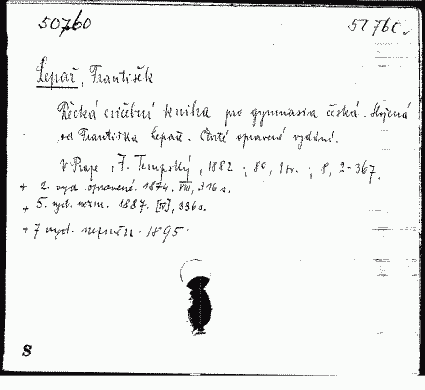 50760 51760
Lepař, František
Řecká cvičebni kniha pro gymnasia česká.
od Františka Lepaře. Čtvrté opravené vydání.
V Praze, F. Tempský, 1882; 8°, 8, 2-367.
+ 2. vyd. opravené. 1874. VIII, 316 s.
+ 5. vyd. 1887. [IV], 336 s.
+ 7 vyd. nezměn. 1895.
8